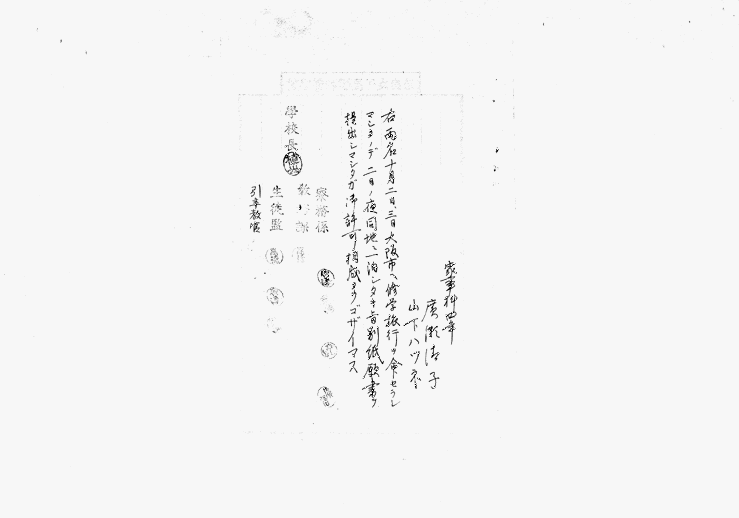 家事科四年
廣瀬清子
山下ハツヱ
右両名十月二日、三日大阪市ヘ修学旅行ヲ命セラレ
マシタノデ二日ノ夜同地ニ一泊シタキ旨別紙願書ヲ
提出シマシタガ御許可相成タウゴザイマス
寮務係
教務課
生徒監
引率教官
學校長